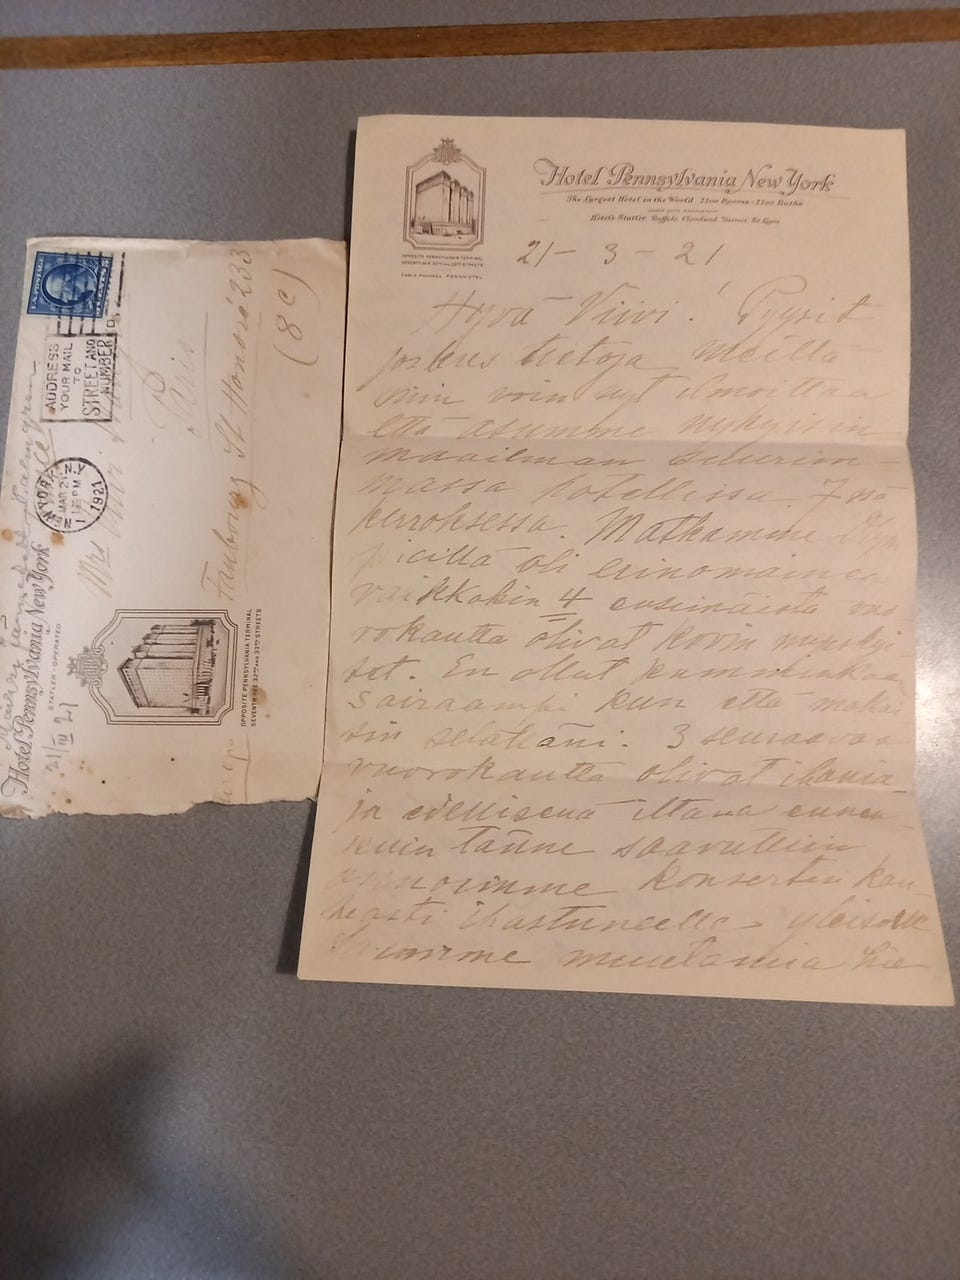 Hotel Pennsylvania New York
The Largest Hotel in the World 2200 Rooms-2200 Baths
Hotels Statler, Buffalo, Cleveland, Detroit, St. Louis
OPPOSITE PENNSYLVANIA TERMINAL
SEVENTH AVE. 32ND AND 33RD STREETS
CABLE ADDRESS PENNHOTEL
21 - 3 - 21
Hyvä Viivi! Pyysit
joskus tietoja meiltä
niin voin nyt ilmoittaa
että asumme nykyisin
maailman suurim-
massa hotellissa 7nä
kerroksessa. Matkamme
oli erinomainen
vaikkakin 4 ensimäistä vuo
rokautta olivat kovin myrskyi
set. En ollut kumminkaan
sairaampi kun että maka
sin selälläni. 3 seuraavaa
vuorokautta olivat ihania
ja edellisenä iltana ennen
kuin tänne saavuttiin
annoimme konsertin
ihastuneelle yleisölle
muutamia
ADDRESS
YOUR MAIL
TO
STREET AND
NUMBER
NEW YORK, N.Y.
MAR 21
PM
1921
Mrs
Paris
Faubourg St Honoré 233
(8e)
Hotel Pennsylvania New York
STATLER-OPERATED
OPPOSITE PENNSYLVANIA TERMINAL
SEVENTH AVE 32ND AND 33RD STREETS
21/III 21
Europa